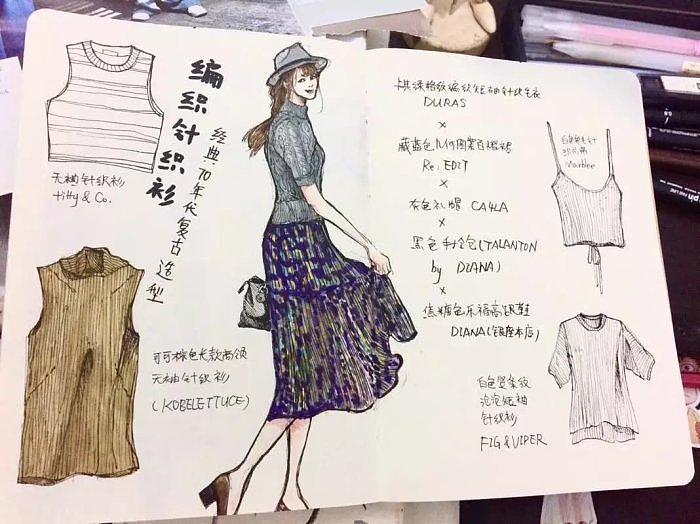 编织针织衫
经典70年代复古造型
无袖针织衫
titty & Co.
可可棕色长款高领
无袖针织衫
(KOBELETTUCE)
卡其绿格纹编织短袖针织毛衣
DURAS
×
藏蓝色几何图案百褶裙
Re: EDIT
×
灰色礼帽 CA4LA
×
黑色手拎包(TALANTON
by DIANA)
×
焦糖色乐福高跟鞋
DIANA(银座本店)
白色毛针
织吊带
Marblee
白色竖条纹
泡泡短袖
针织衫
FIG & VIPER